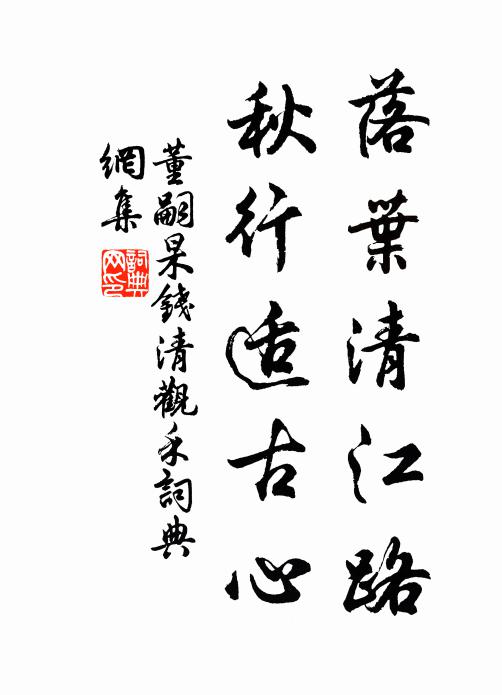 落葉清江路
秋行适古心
董嗣杲錢清觀禾詞典
網集
詞典
网印